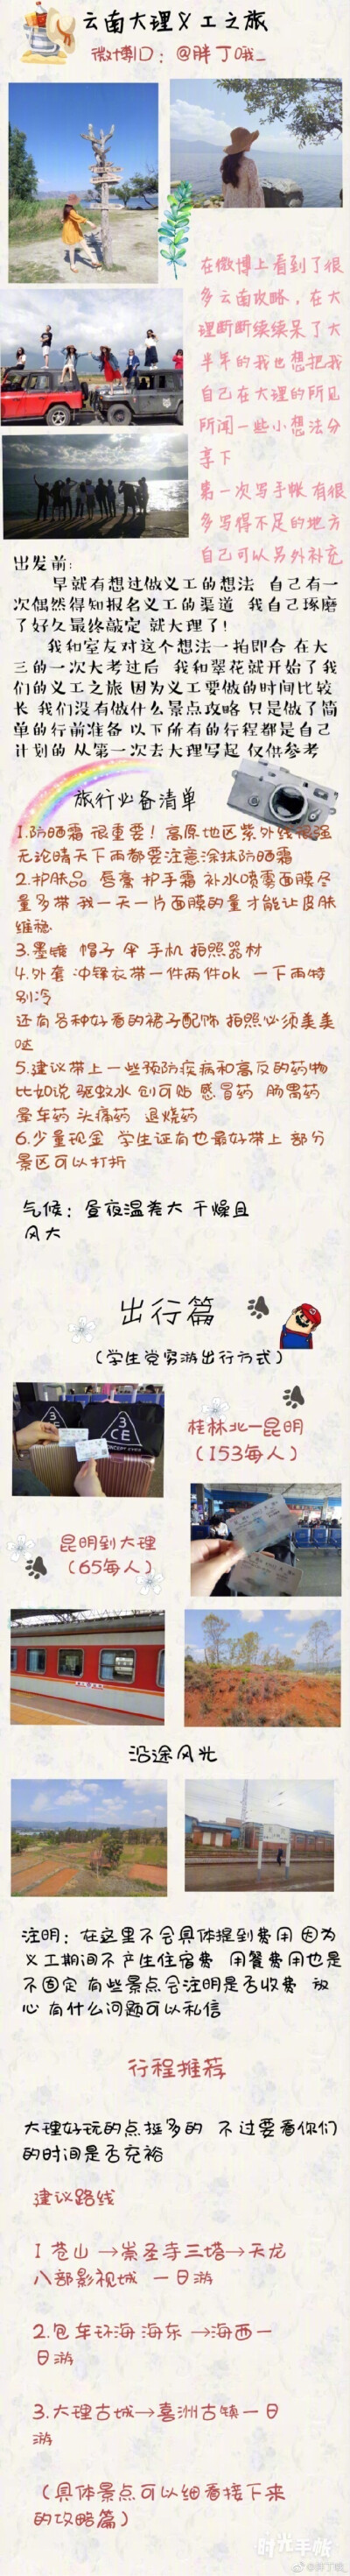 云南大理义工之旅
微博ID：@胖丁哦_
在微博上看到了很
多云南攻略，在大
理断断续续呆了大
半年的我也想把我
自己在大理的所见
所闻一些小想法分
享下
第一次写手帐有很
多写得不足的地方
自己可以另外补充
出发前：
早就有想过做义工的想法 自己有一
次偶然得知报名义工的渠道 我自己琢磨
了好久最终敲定 就大理了！
我和室友对这个想法一拍即合 在大
三的一次大考过后 我和翠花就开始了我
们的义工之旅 因为义工要做的时间比较
长 我们没有做什么景点攻略 只是做了简
单的行前准备 以下所有的行程都是自己
计划的 从第一次去大理写起 仅供参考
旅行必备清单
1.防晒霜 很重要！高原地区紫外线很强
无论晴天下雨都要注意涂抹防晒霜
2.护肤品 唇膏 护手霜 补水喷雾面膜尽
量多带 我一天一片面膜的量才能让皮肤
维稳
3.墨镜 帽子 伞 手机 拍照器材
4.外套 冲锋衣带一件两件ok 一下雨特
别冷
还有各种好看的裙子配饰 拍照必须美美
哒
5.建议带上一些预防疾病和高反的药物
比如说 驱蚊水 创可贴 感冒药 肠胃药
晕车药 头痛药 退烧药
6.少量现金 学生证有也最好带上 部分
景区可以打折
气候：昼夜温差大 干燥且
风大
出行篇
（学生党穷游出行方式）
3
CE
3
CE
桂林北—昆明
（153每人）
昆明到大理
（65每人）
沿途风光
注明：在这里不会具体提到费用 因为
义工期间不产生住宿费 用餐费用也是
不固定 有些景点会注明是否收费 放
心 有什么问题可以私信
行程推荐
大理好玩的点挺多的 不过要看你们
的时间是否充裕
建议路线
1 苍山 →崇圣寺三塔→天龙
八部影视城 一日游
2.包车环海 海东 →海西一
日游
3.大理古城→喜洲古镇一日
游
（具体景点可以细看接下来
的攻略篇）
时光手帐
@胖丁哦_